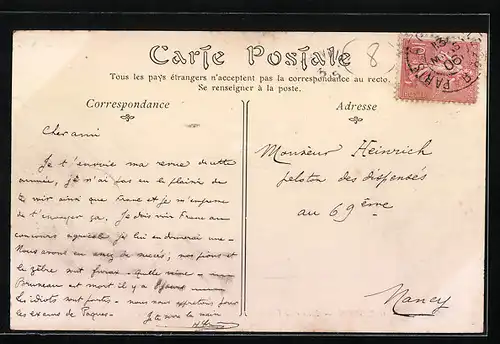 Carte Postale
Tous les pays étrangers n'acceptent pas la correspondance au recto.
Se renseigner à la poste.
Correspondance
Adresse
8
PARIS
Cher ami
Je t'envoie ma revue de cette
année, je n'ai pas eu le plaisir de
te voir ainsi que Franc et je m'empresse
de t'envoyer ça. Je dois voir Franc au
concours agricole je lui en donnerai une -
Nous avons eu assez de succès; nos pions et
le zèbre sont furieux -
Bruneau est mort il y a
Les idiots sont forts - nous nous apprêtons pour
les exams de Pâques - Je te serre la main
Monsieur Heinrich
peloton des dispensés
au 69ème
Nancy